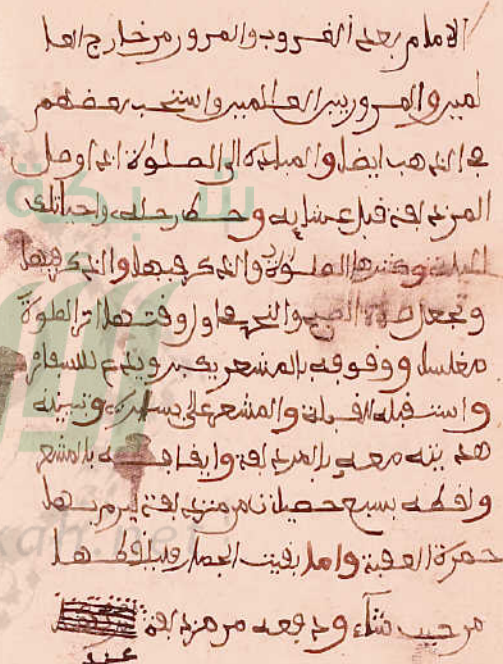 الامام بعد الغروب والمرور من خارج العا
لمين والمرور بين العالمين واستحب بعضهم
في الذهب ايضا والمبادرة الى الصلوة اذا وصل
المزدلفة قبل عشايه وحط رحله واحياتلك
الليلة وكثرة الصلوة والذكر فيها
وتجعل صلاة الصبح والنحر في اول وقتها اثر الصلوة
مغلسا ووقوفه بالمشعر يكبر ويدع للاسفار
واستقبله القبلة والمشعر على يساره وتبيته
هديته معه بالمزدلفة وايقافه به بالمشعر
ولقطه سبع حصيات من مزدلفة ليرم بها
جمرة العقبة واما بقيت الجمار فيلقطها
من حيث شاء ودفعه من مزدلفة
عند
شبكة